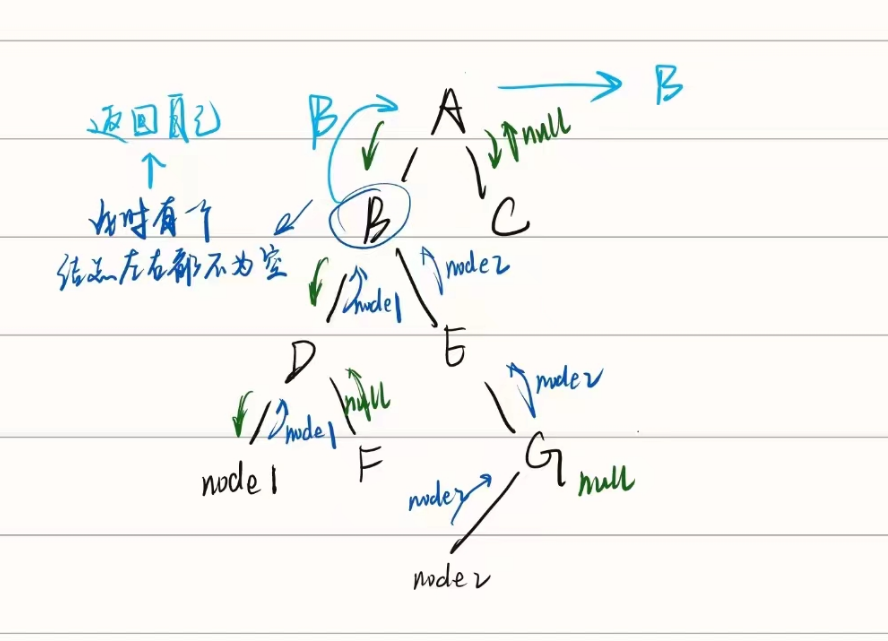 B
A
B
返回自己
null
此时有个
B
C
结点左右都不为空
node2
node1
D
E
node2
null
node1
node1
F
G
null
node2
node2